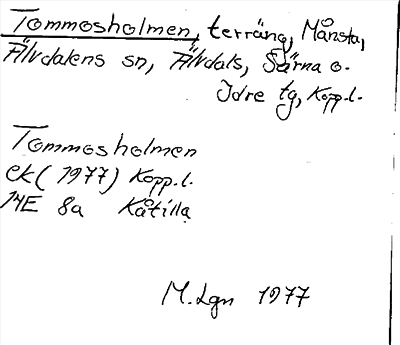 Tommosholmen, terräng, Månsta,
Älvdalens sn, Älvdals, Särna o.
Idre tg, Kopp.l.
Tommosholmen
ek (1977) Kopp.l.
14E 8a Kåtilla
M.Lgn 1977